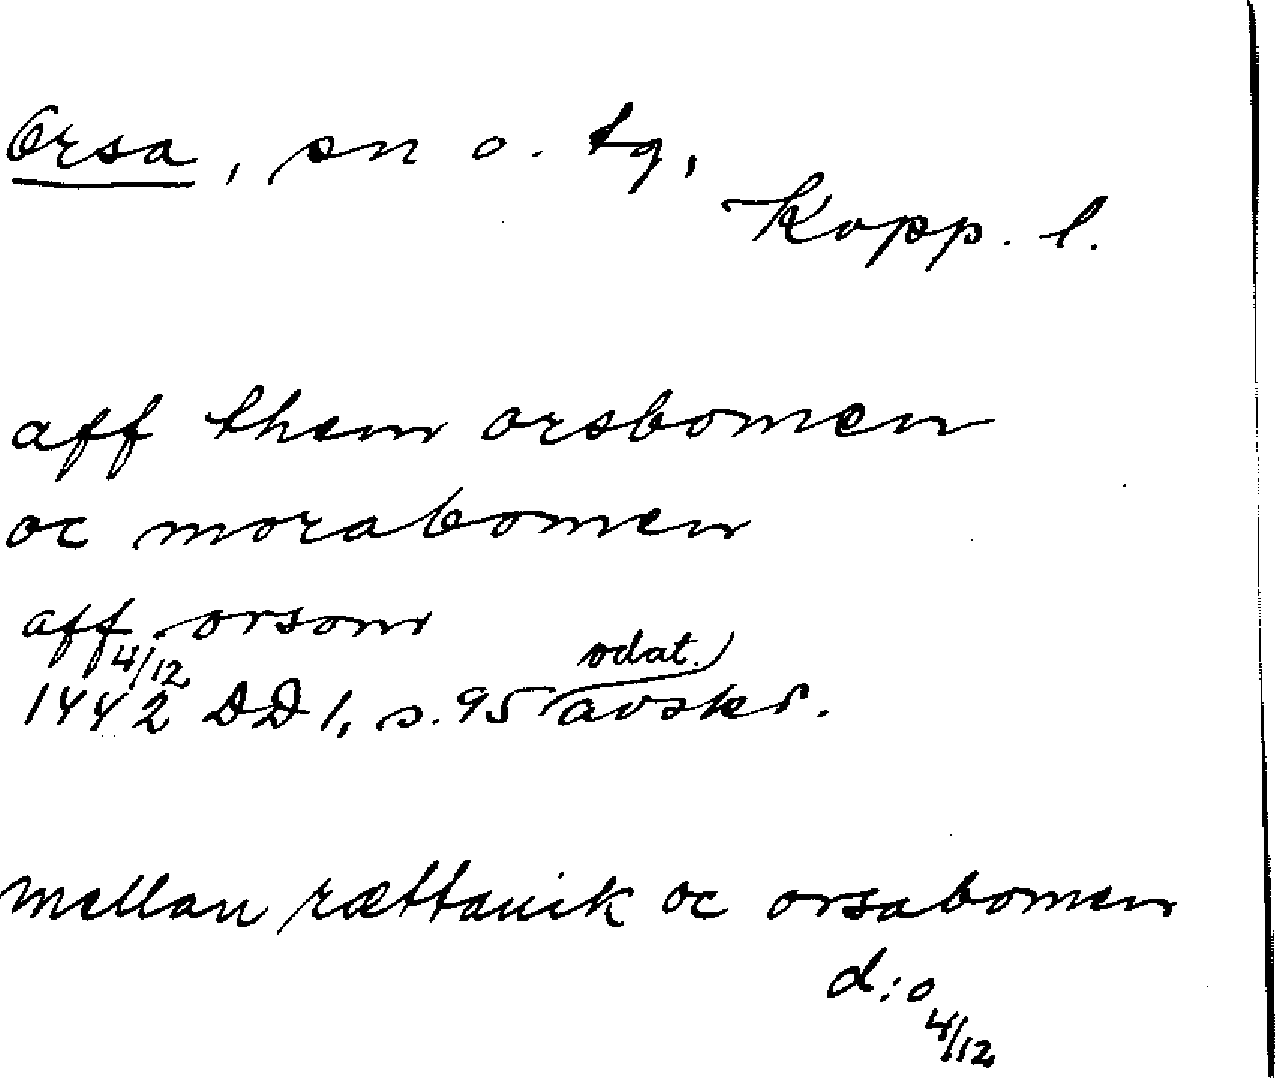 Orsa, sn o. tg,
Kopp. l.
aff them orsbomen
oc morabomen
aff orsom
4/12 odat.
1442 DD 1, s. 95 avskr.
mellan rættauik oc orsabomen
d:o
4/12